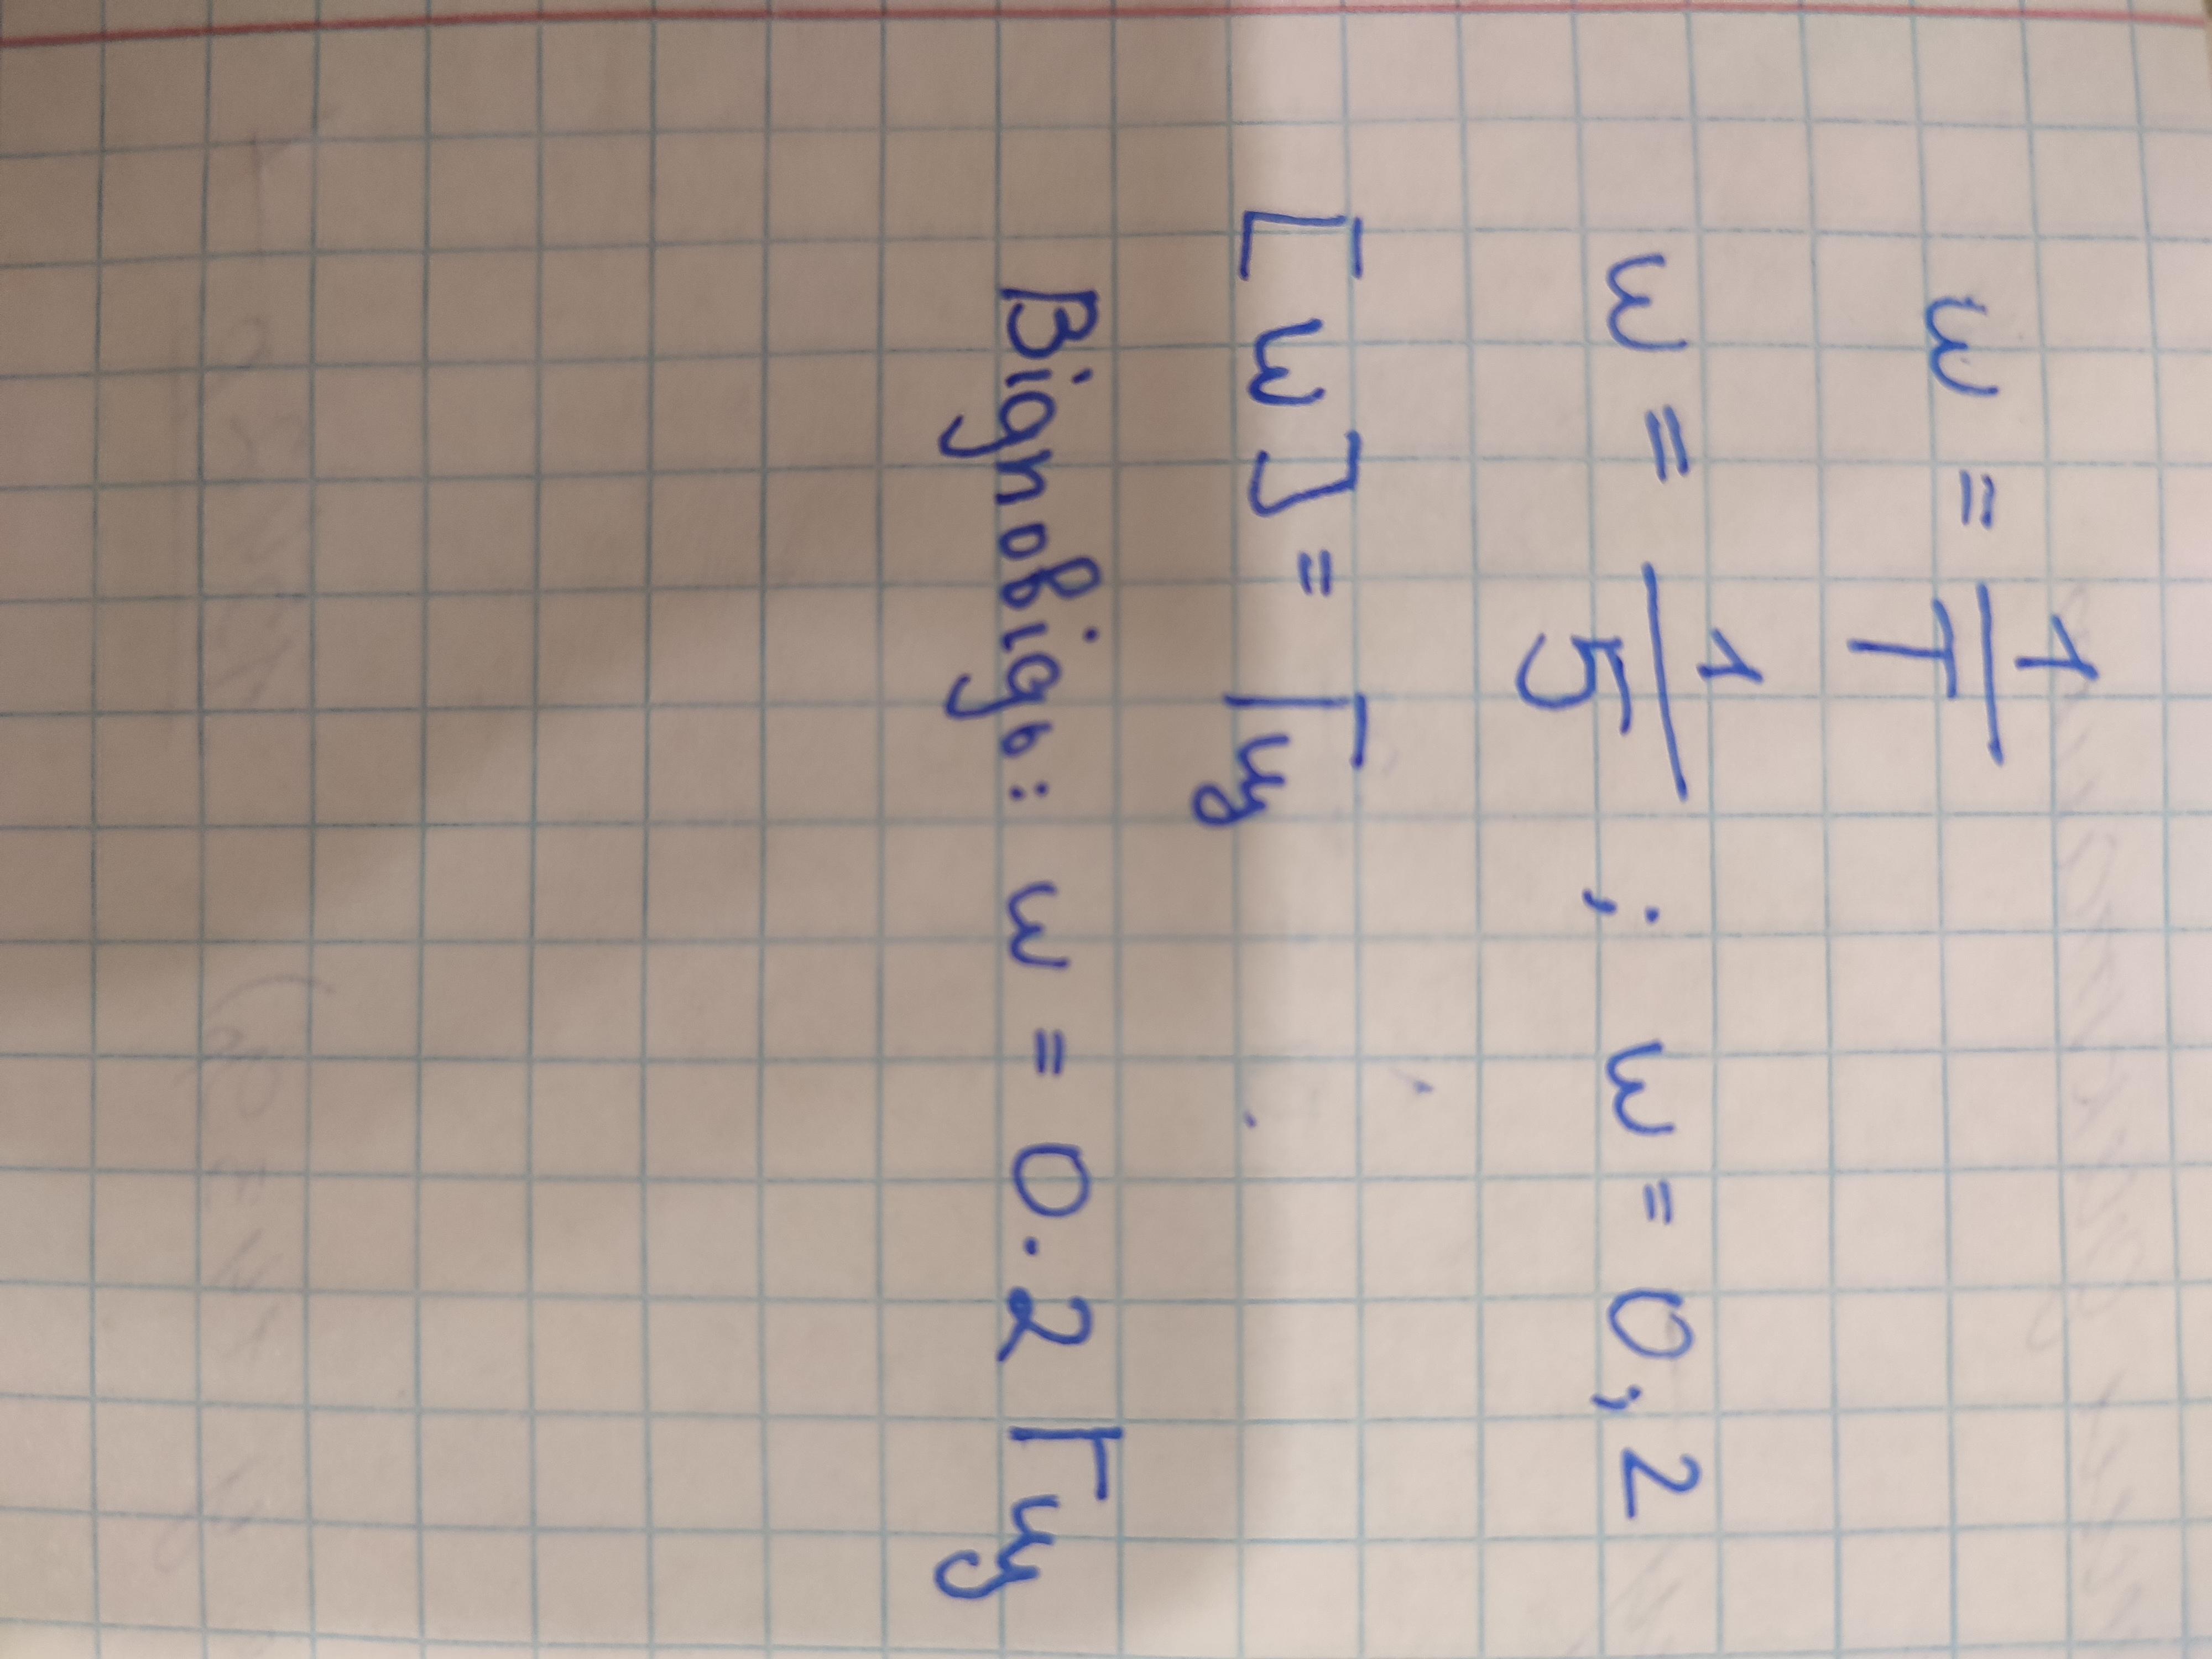 ω = 1/T
ω = 1/5 ; ω = 0,2
[ω] = Гц
Відповідь: ω = 0.2 Гц